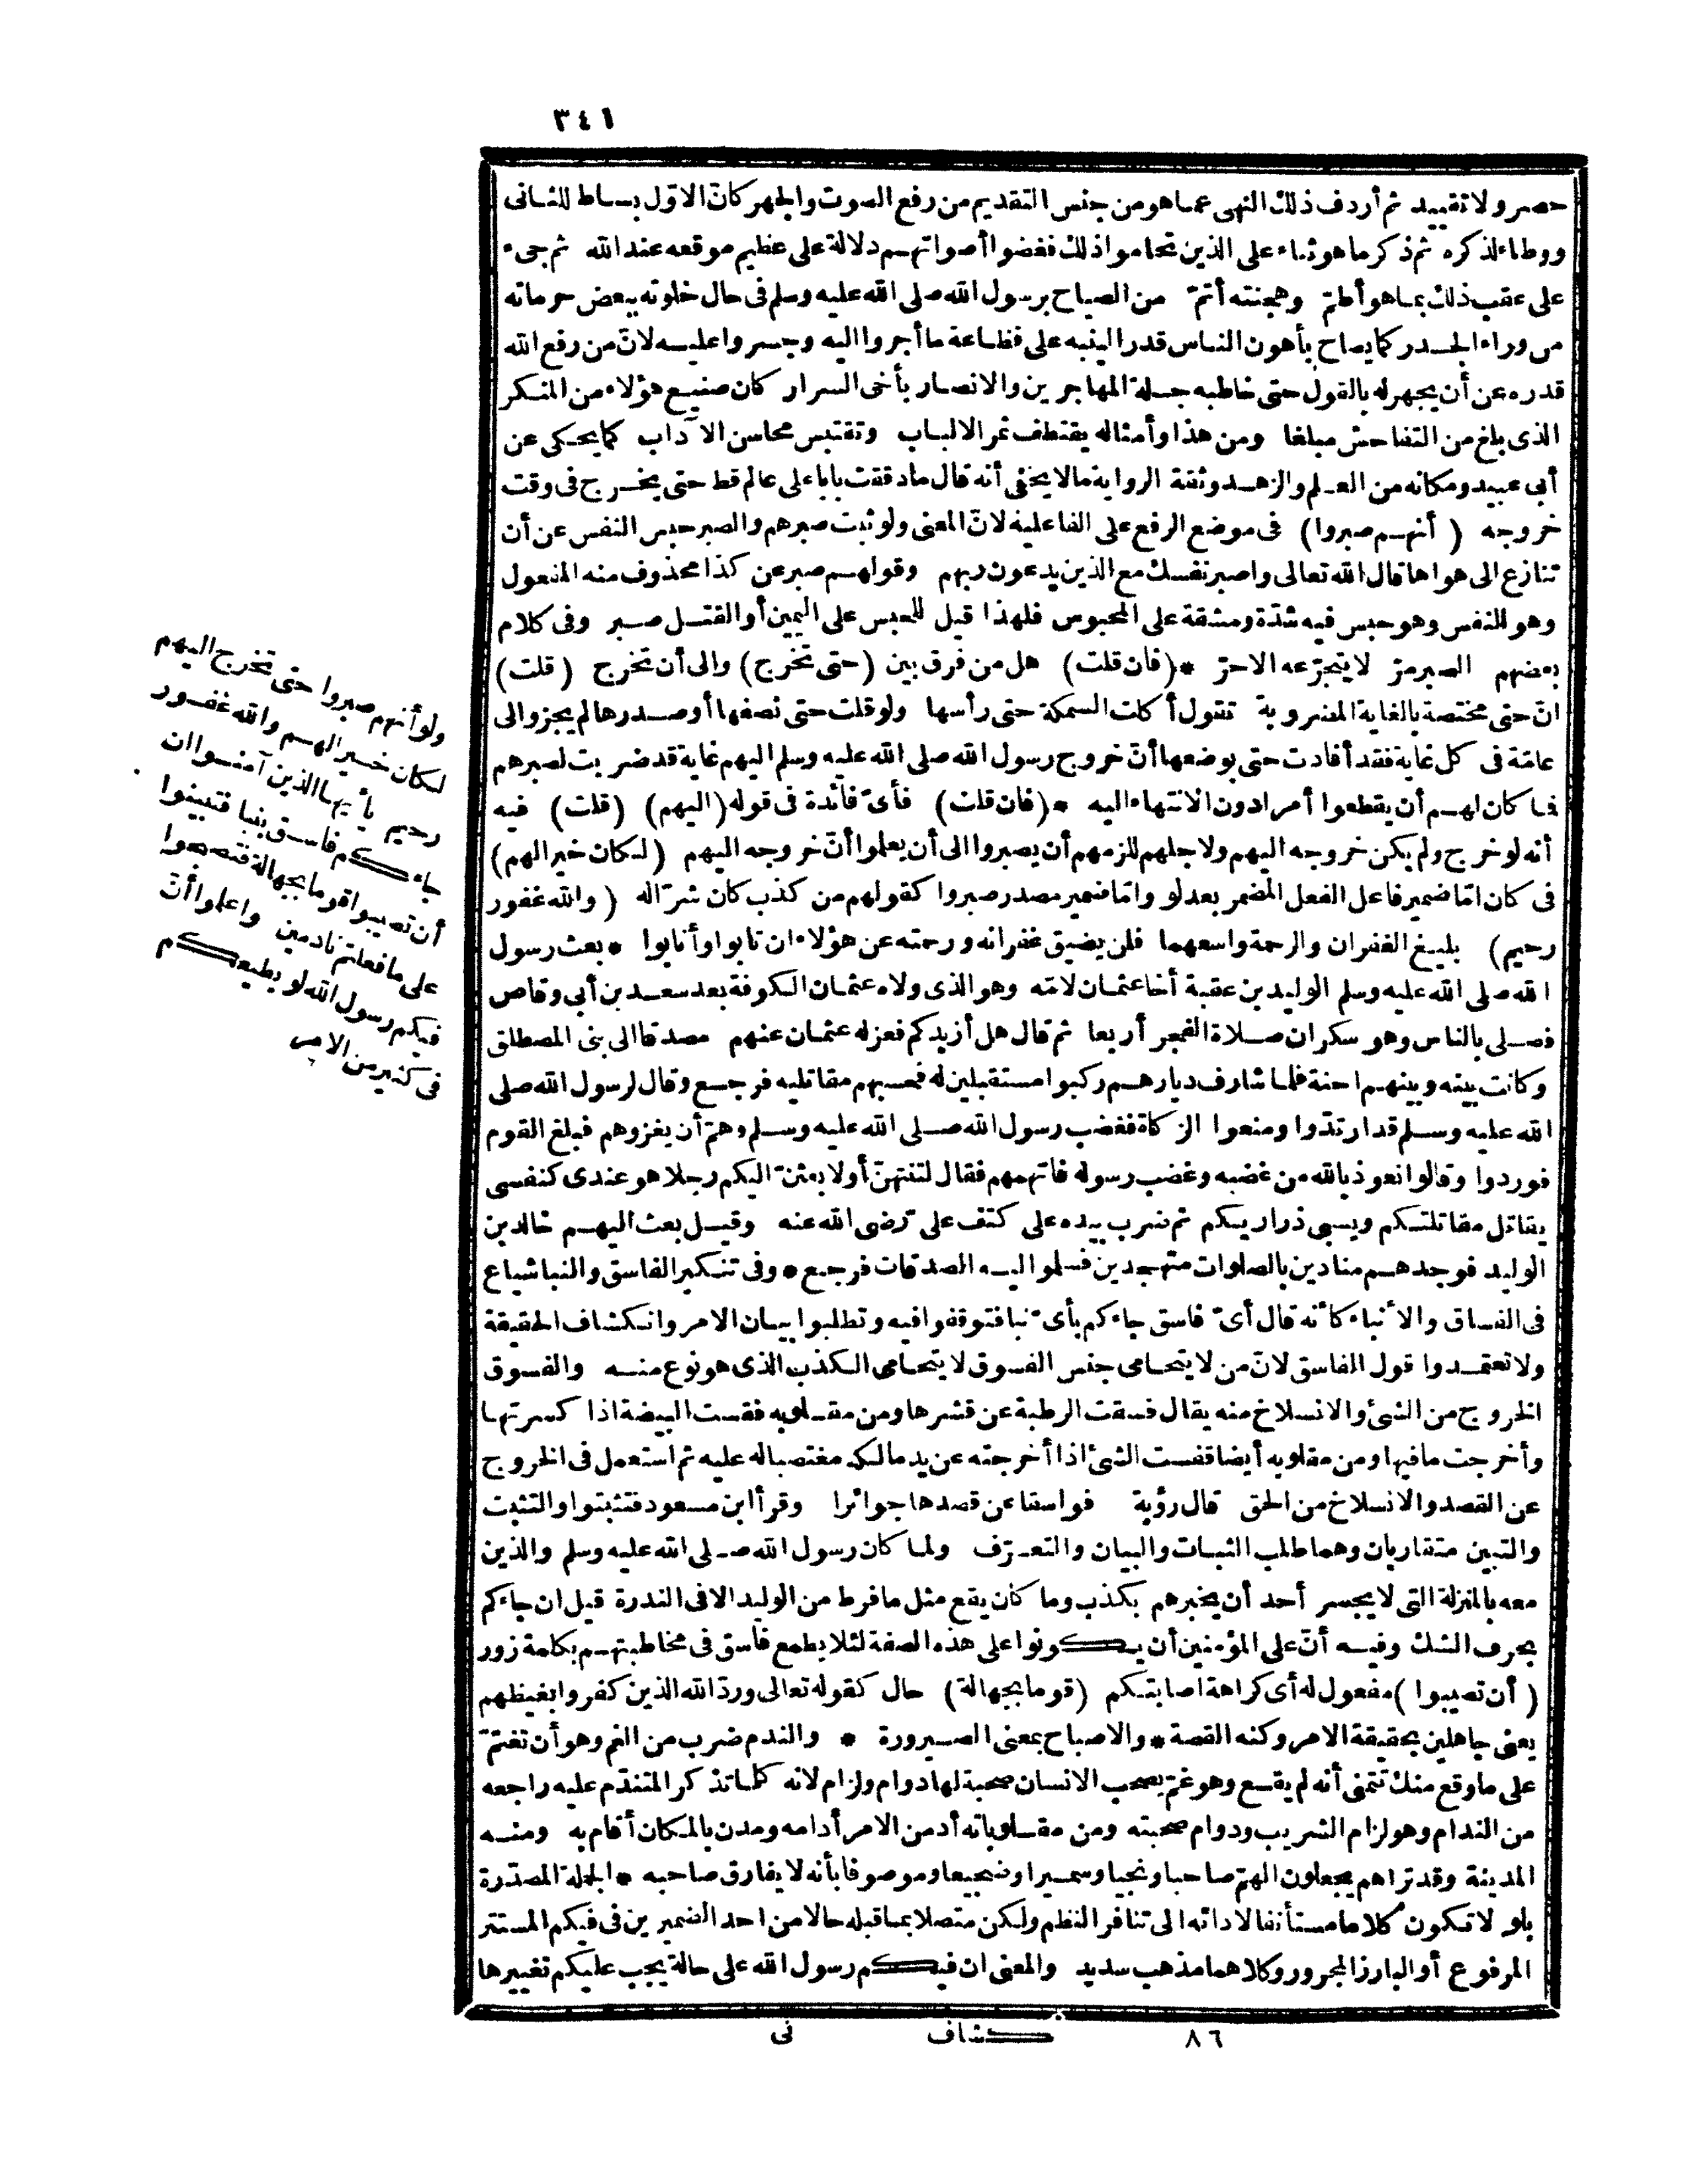 ٣٤١
حصر ولا تقييد ثم أردف ذلك النهى عما هو من جنس التقديم من رفع الصوت والجهر كانّ الاوّل بساط للثانى
ووطاء لذكره ثم ذكر ما هو ثناء على الذين تحاموا ذلك فغضوا أصواتهم دلالة على عظيم موقعه عند الله ثم جىء
على عقب ذلك بما هو أطمّ وهجنته أتمّ من الصياح برسول الله صلى الله عليه وسلم فى حال خلوته ببعض حرماته
من وراء الجدر كما يصاح بأهون الناس قدرا لينبه على فظاعة ما أجروا اليه وجسروا عليه لانّ من رفع الله
قدره عن أن يجهر له بالقول حتى خاطبه جلة المهاجرين والانصار بأخى السرار كان صنيع هؤلاء من المنكر
الذى بلغ من التفاحش مبلغا ومن هذا وأمثاله يقتطف ثمر الالباب وتقتبس محاسن الآداب كما يحكى عن
أبى عبيد ومكانه من العلم والزهد وثقة الرواية مالا يخفى أنه قال ما دققت بابا على عالم قط حتى يخرج فى وقت
خروجه (أنهم صبروا) فى موضع الرفع على الفاعلية لانّ المعنى ولو ثبت صبرهم والصبر حبس النفس عن أن
تنازع الى هواها قال الله تعالى واصبر نفسك مع الذين يدعون ربهم وقولهم صبر عن كذا محذوف منه المفعول
وهو النفس وهو حبس فيه شدّة ومشقة على المحبوس فلهذا قيل للحبس على اليمين أو القتل صبر وفى كلام
بعضهم الصبر مرّ لا يتجرّعه الا حرّ * (فان قلت) هل من فرق بين (حتى تخرج) والى أن تخرج (قلت)
انّ حتى مختصة بالغاية المضروبة تقول أكلت السمكة حتى رأسها ولو قلت حتى نصفها أو صدرها لم يجز والى
عامّة فى كل غاية فقد أفادت حتى بوضعها أنّ خروج رسول الله صلى الله عليه وسلم اليهم غاية قد ضربت لصبرهم
فما كان لهم أن يقطعوا أمرا دون الانتهاء اليه * (فان قلت) فأىّ فائدة فى قوله (اليهم) (قلت) فيه
أنه لو خرج ولم يكن خروجه اليهم ولاجلهم للزمهم أن يصبروا الى أن يعلموا أنّ خروجه اليهم (لكان خيرا لهم)
فى كان امّا ضمير فاعل الفعل المضمر بعد لو وامّا ضمير مصدر صبروا كقولهم من كذب كان شرّا له (والله غفور
رحيم) بليغ الغفران والرحمة واسعهما فلن يضيق غفرانه ورحمته عن هؤلاء ان تابوا وأنابوا * بعث رسول
الله صلى الله عليه وسلم الوليد بن عقبة أخا عثمان لامّه وهو الذى ولاه عثمان الكوفة بعد سعد بن أبى وقاص
فصلى بالناس وهو سكران صلاة الفجر أربعا ثم قال هل أزيدكم فعزله عثمان عنهم مصدقا الى بنى المصطلق
وكانت بينه وبينهم احنة فلما شارف ديارهم ركبوا مستقبلين له فحسبهم مقاتليه فرجع وقال لرسول الله صلى
الله عليه وسلم قد ارتدّوا ومنعوا الزكاة فغضب رسول الله صلى الله عليه وسلم وهمّ أن يغزوهم فبلغ القوم
فوردوا وقالوا نعوذ بالله من غضبه وغضب رسوله فاتهمهم فقال لتنتهنّ أو لابعثنّ اليكم رجلا هو عندى كنفسى
يقاتل مقاتلتكم ويسبى ذراريكم ثم ضرب بيده على كتف علىّ رضى الله عنه وقيل بعث اليهم خالد بن
الوليد فوجدهم منادين بالصلوات متهجدين فسلموا اليه الصدقات فرجع * وفى تنكير الفاسق والنبا شياع
فى الفساق والأنباء كأنه قال أىّ فاسق جاءكم بأىّ نبا فتوقفوا فيه وتطلبوا بيان الامر وانكشاف الحقيقة
ولا تعتمدوا قول الفاسق لانّ من لا يتحامى جنس الفسوق لا يتحامى الكذب الذى هو نوع منه والفسوق
الخروج من الشئ والانسلاخ منه يقال فسقت الرطبة عن قشرها ومن مقلوبه فقست البيضة اذا كسرتها
وأخرجت ما فيها ومن مقلوبه أيضا قفست الشئ اذا أخرجته عن يد مالكه مغتصبا له عليه ثم استعمل فى الخروج
عن القصد والانسلاخ من الحق قال رؤبة فواسقا عن قصدها جوائرا وقرأ ابن مسعود فتثبتوا والتثبت
والتبين متقاربان وهما طلب الثبات والبيان والتعرّف ولما كان رسول الله صلى الله عليه وسلم والذين
معه بالمنزلة التى لا يجسر أحد أن يخبرهم بكذب وما كان يقع مثل ما فرط من الوليد الا فى الندرة قيل ان جاءكم
بحرف الشك وفيه أنّ على المؤمنين أن يكونوا على هذه الصفة لئلا يطمع فاسق فى مخاطبتهم بكلمة زور
(أن تصيبوا) مفعول له أى كراهة اصابتكم (قوما بجهالة) حال كقوله تعالى وردّ الله الذين كفروا بغيظهم
يعنى جاهلين بحقيقة الامر وكنه القصة * والاصباح بمعنى الصيرورة * والندم ضرب من الغم وهو أن تغتمّ
على ما وقع منك تتمنى أنه لم يقع وهو غمّ يصحب الانسان صحبة لها دوام ولزام لانه كلما تذكر المتندّم عليه راجعه
من الندام وهو لزام الشريب ودوام صحبته ومن مقلوباته أدمن الامر أدامه ومدن بالمكان أقام به ومنه
المدينة وقد تراهم يجعلون الهمّ صاحبا ونجيا وسميرا وضجيعا وموصوفا بأنه لا يفارق صاحبه * الجملة المصدّرة
بلو لا تكون كلاما مستأنفا لادائه الى تنافر النظم ولكن متصلا بما قبله حالا من احد الضميرين فى فيكم المستتر
المرفوع أو البارز المجرور وكلاهما مذهب سديد والمعنى ان فيكم رسول الله على حالة يجب عليكم تغييرها
ولو أنهم صبروا حتى تخرج اليهم
لكان خيرا لهم والله غفور
رحيم يأيها الذين آمنوا ان
جاءكم فاسق بنبا فتبينوا
أن تصيبوا قوما بجهالة فتصبحوا
على ما فعلتم نادمين واعلموا أنّ
فيكم رسول الله لو يطيعكم
فى كثير من الامر
٨٦ كشاف نى